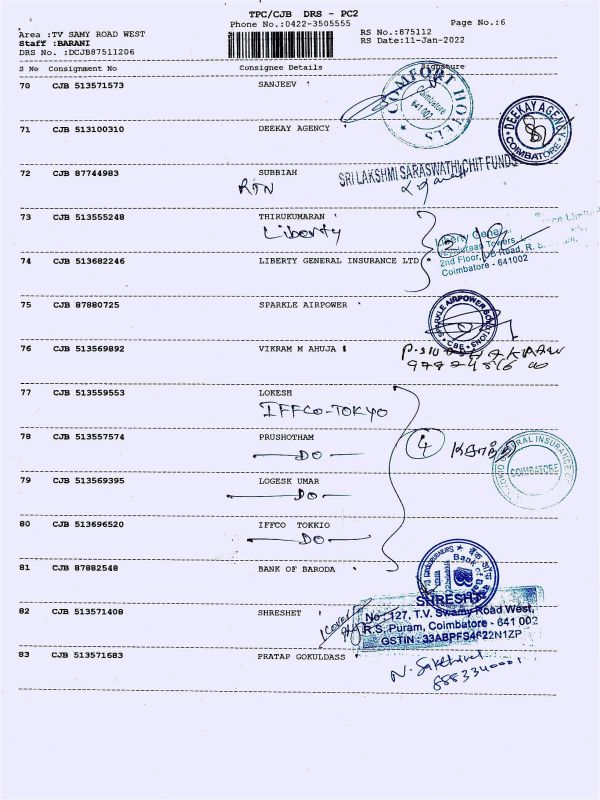 TPC/CJB DRS - PC2
Phone No.:0422-3505555
Page No.:6
Area :TV SAMY ROAD WEST
RS No.:875112
Staff :BARANI
RS Date:11-Jan-2022
DRS No. :DCJB87511206
S No Consignment No Consignee Details Signature
70 CJB 513571573 SANJEEV
COMFORT HOTELS
Coimbatore
641 002
71 CJB 513100310 DEEKAY AGENCY
DEEKAY AGENCY
COIMBATORE
72 CJB 87744983 SUBBIAH
RTN
SRI LAKSHMI SARASWATHI CHIT FUNDS
73 CJB 513555248 THIRUKUMARAN
Liberty
2
Liberty General
Towers,
2nd Floor, DB Road, R. S.
Coimbatore - 641002
74 CJB 513682246 LIBERTY GENERAL INSURANCE LTD
75 CJB 87880725 SPARKLE AIRPOWER
SPARKLE AIRPOWER
CBE
76 CJB 513569892 VIKRAM M AHUJA
77 CJB 513559553 LOKESH
IFFCO-TOKYO
78 CJB 513557574 PRUSHOTHAM
DO
4
GENERAL INSURANCE
COIMBATORE
79 CJB 513569395 LOGESK UMAR
DO
80 CJB 513696520 IFFCO TOKKIO
DO
81 CJB 87882548 BANK OF BARODA
Bank of Baroda
82 CJB 513571408 SHRESHET
No: 127, T.V. Swamy Road West,
R.S. Puram, Coimbatore - 641 002
GSTIN : 33ABPFS4622N1ZP
83 CJB 513571683 PRATAP GOKULDASS
N. Sakthivel
8883340001